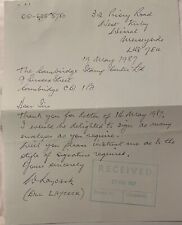 3a Priory Road
West Kirby
Wirral
Merseyside
L48 7ET
19 May 1987
The Cambridge Stamp Centre Ltd
9 Sussex Street
Cambridge CB1 1PA
Dear Sir
Thank you for letter of 16 May 1987.
I would be delighted to sign as many
envelopes as you require.
Will you please instruct me as to the
style of signature required.
Yours sincerely
RECEIVED
(Bill LAYCOCK)